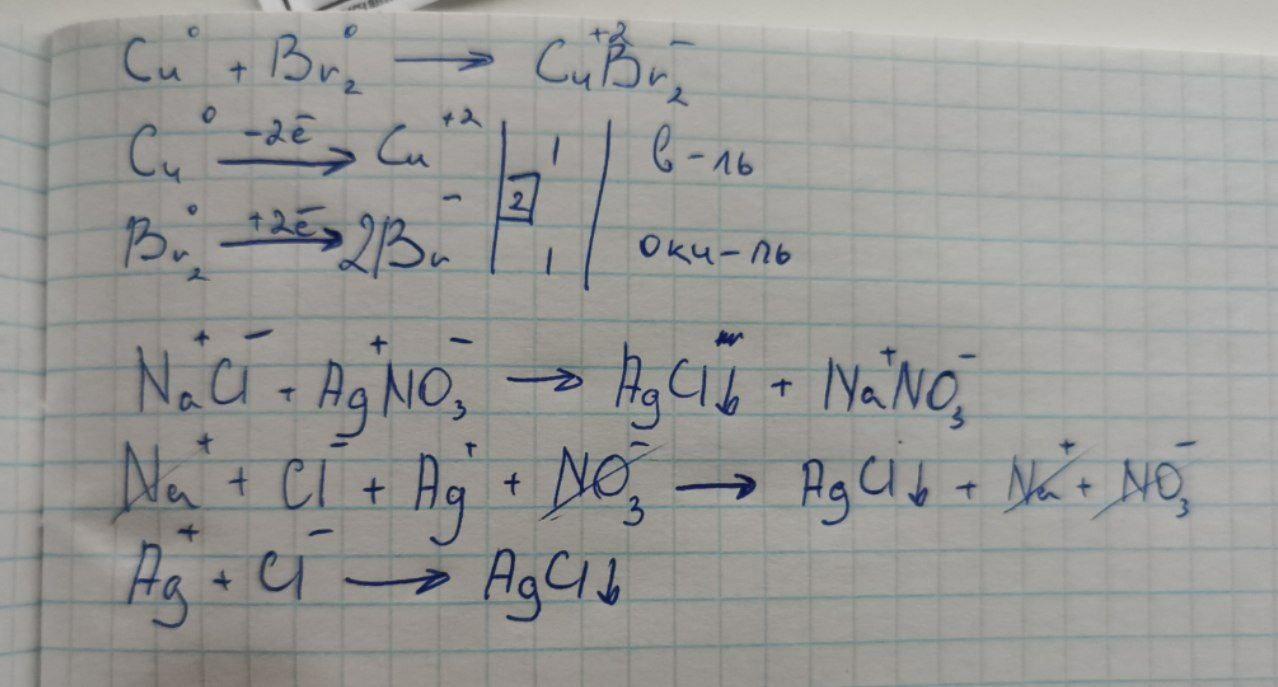 Cu⁰ + Br₂⁰ → Cu⁺²Br₂⁻
Cu⁰ —-2ē→ Cu⁺² | 1 | в-ль
2
Br₂⁰ —+2ē→ 2Br⁻ | 1 | оки-ль
Na⁺Cl⁻ + Ag⁺NO₃⁻ → AgCl↓ + Na⁺NO₃⁻
Na⁺ + Cl⁻ + Ag⁺ + NO₃⁻ → AgCl↓ + Na⁺ + NO₃⁻
Ag⁺ + Cl⁻ → AgCl↓